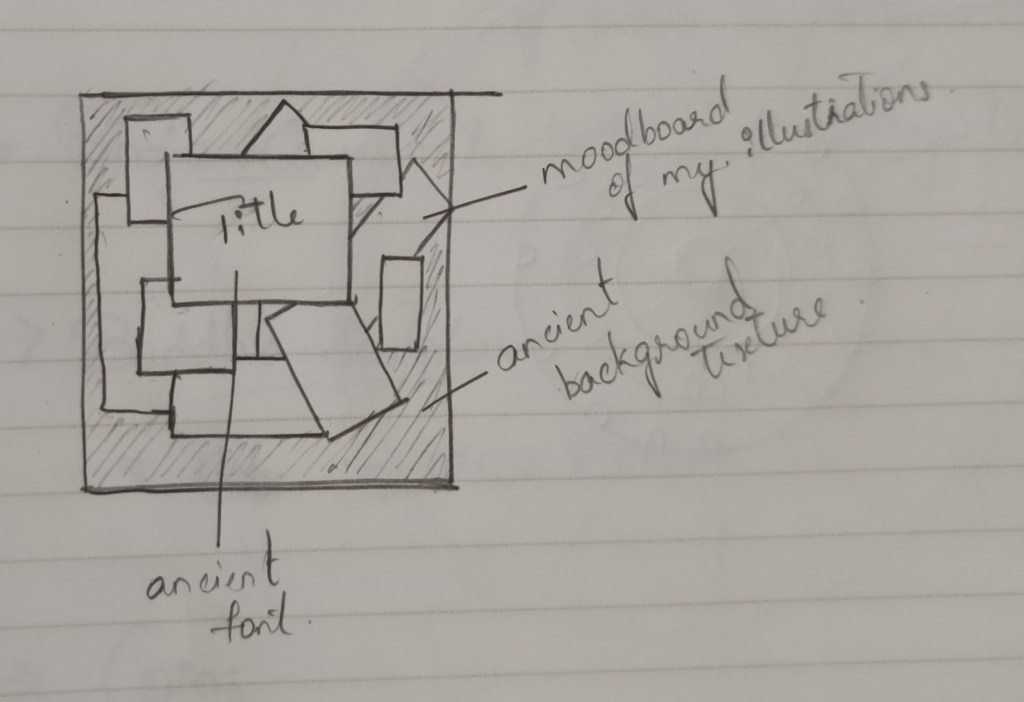 Title
moodboard
of my illustrations.
ancient
background
texture.
ancient
font.